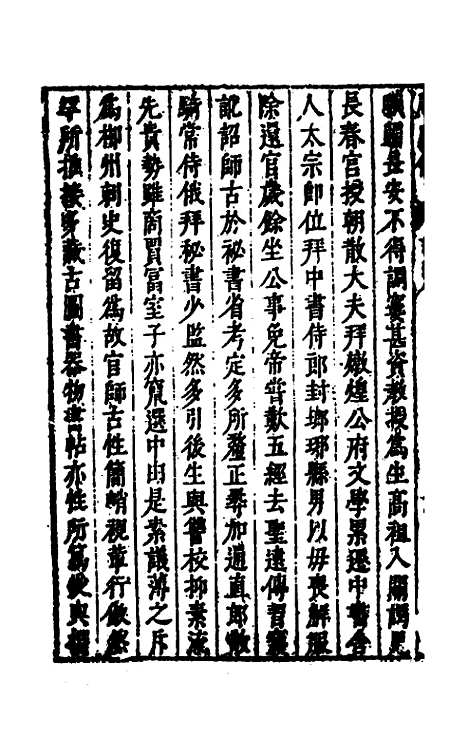 職歸長安不得調窶甚資教授為生高祖入關謁見
長春宮授朝散大夫拜燉煌公府文學累遷中書舍
人太宗即位拜中書侍郎封瑯琊縣男以母喪解服
除還官歲餘坐公事免帝嘗歎五經去聖遠傳習寖
訛詔師古於祕書省考定多所釐正尋加通直郎散
騎常侍俄拜秘書少監然多引後生與讐校抑素流
先貴勢雖商賈富室子亦竄選中由是素議薄之斥
為郴州刺史復留為故官師古性簡峭視輩行傲然
罕所推接多藏古圖書器物書帖亦性所篤愛與撰